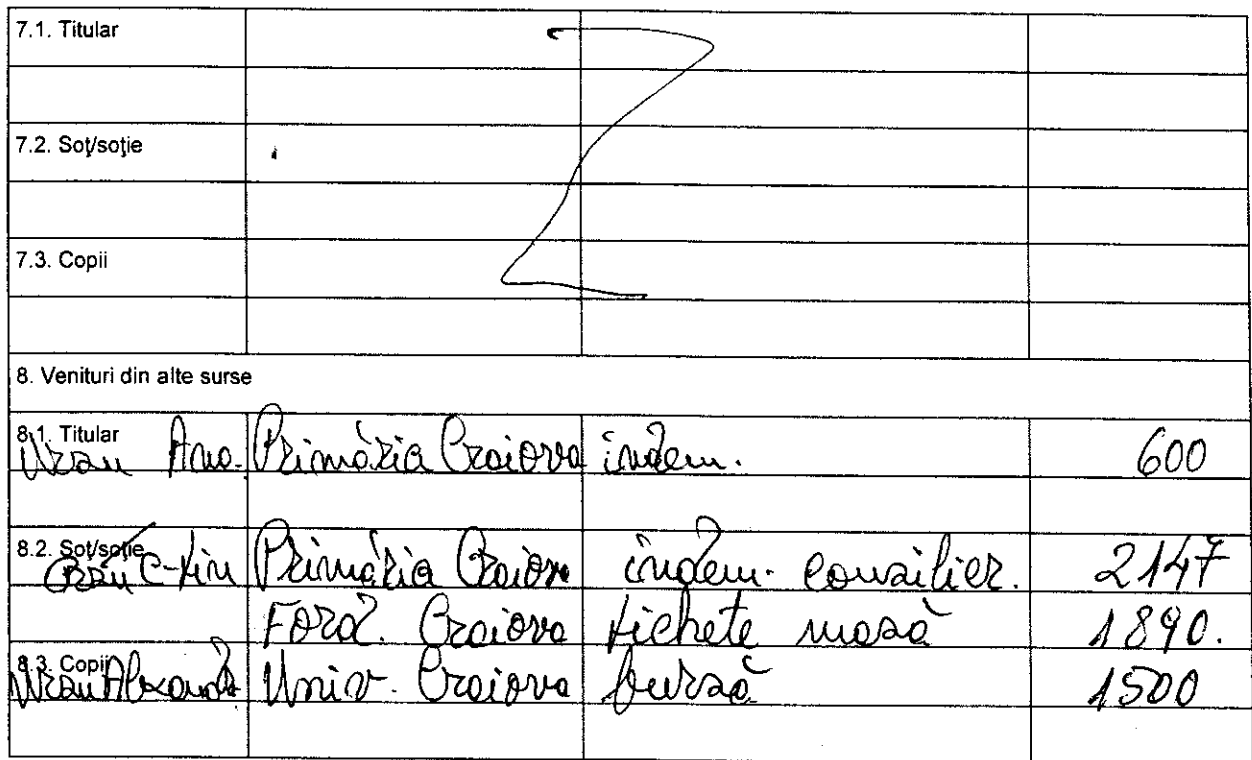 7.1. Titular
7.2. Soţ/soţie
7.3. Copii
8. Venituri din alte surse
8.1. Titular
Ursu Ana. Primăria Craiova indem. 600
8.2. Soţ/soţie
C-tin Primăria Craiova indem. consilier. 2147
Ford. Craiova tichete masă 1890.
8.3. Copii
Ursu Alexandr Univ. Craiova bursă 1500